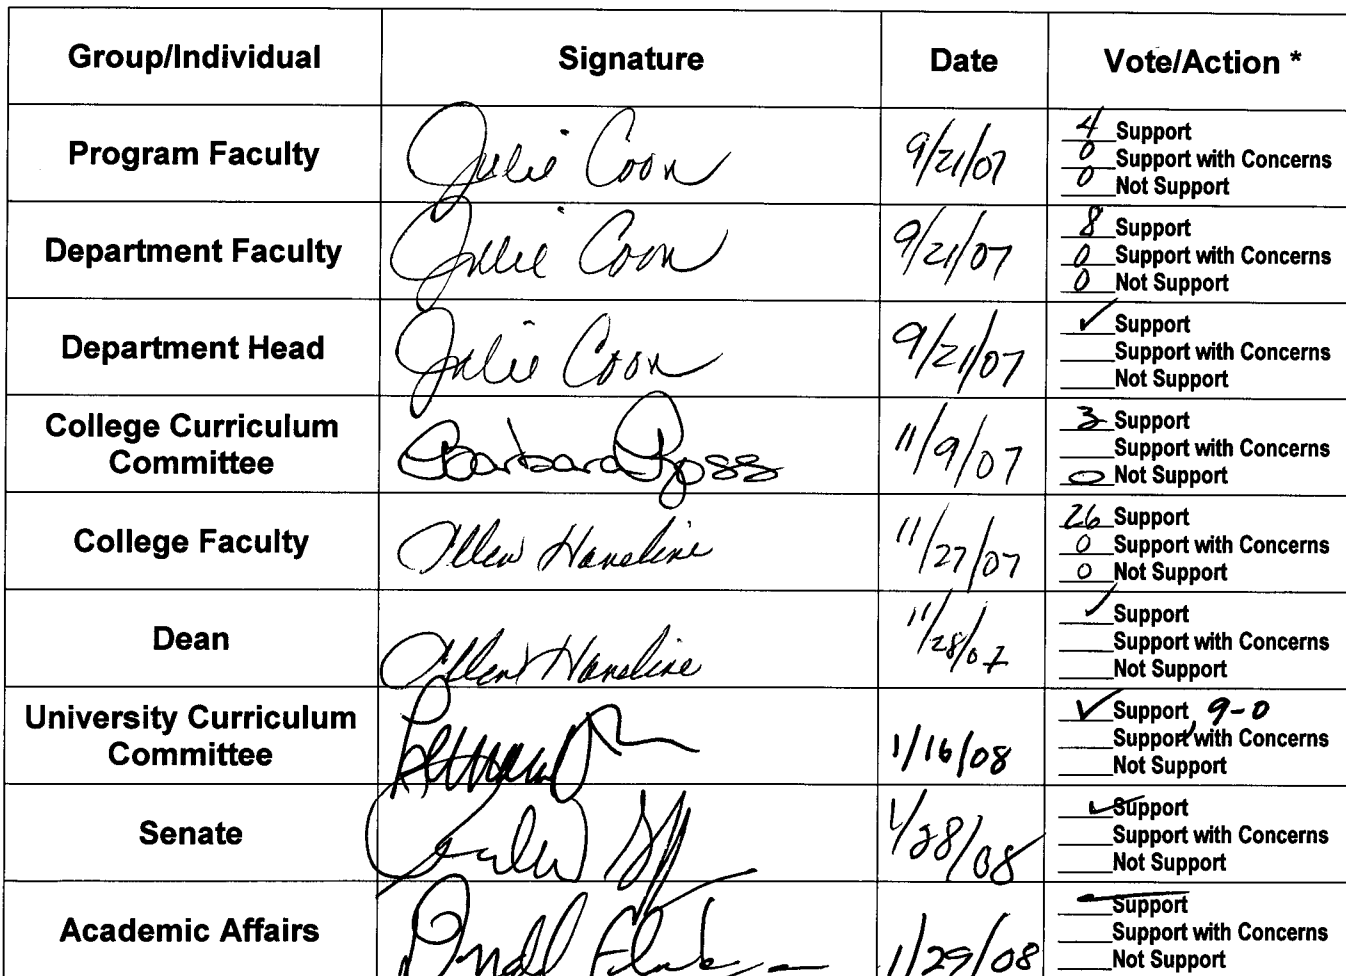 Group/Individual Signature Date Vote/Action *
Program Faculty Julie Coon 9/21/07 4 Support
0 Support with Concerns
0 Not Support
Department Faculty Julie Coon 9/21/07 8 Support
0 Support with Concerns
0 Not Support
Department Head Julie Coon 9/21/07 ✓ Support
Support with Concerns
Not Support
College Curriculum
Committee Barbara Ross 11/9/07 3 Support
Support with Concerns
0 Not Support
College Faculty Allen Haneline 11/27/07 26 Support
0 Support with Concerns
0 Not Support
Dean Allen Haneline 11/28/07 ✓ Support
Support with Concerns
Not Support
University Curriculum
Committee 1/16/08 ✓ Support 9-0
Support with Concerns
Not Support
Senate 1/28/08 ✓ Support
Support with Concerns
Not Support
Academic Affairs 1/29/08 Support
Support with Concerns
Not Support